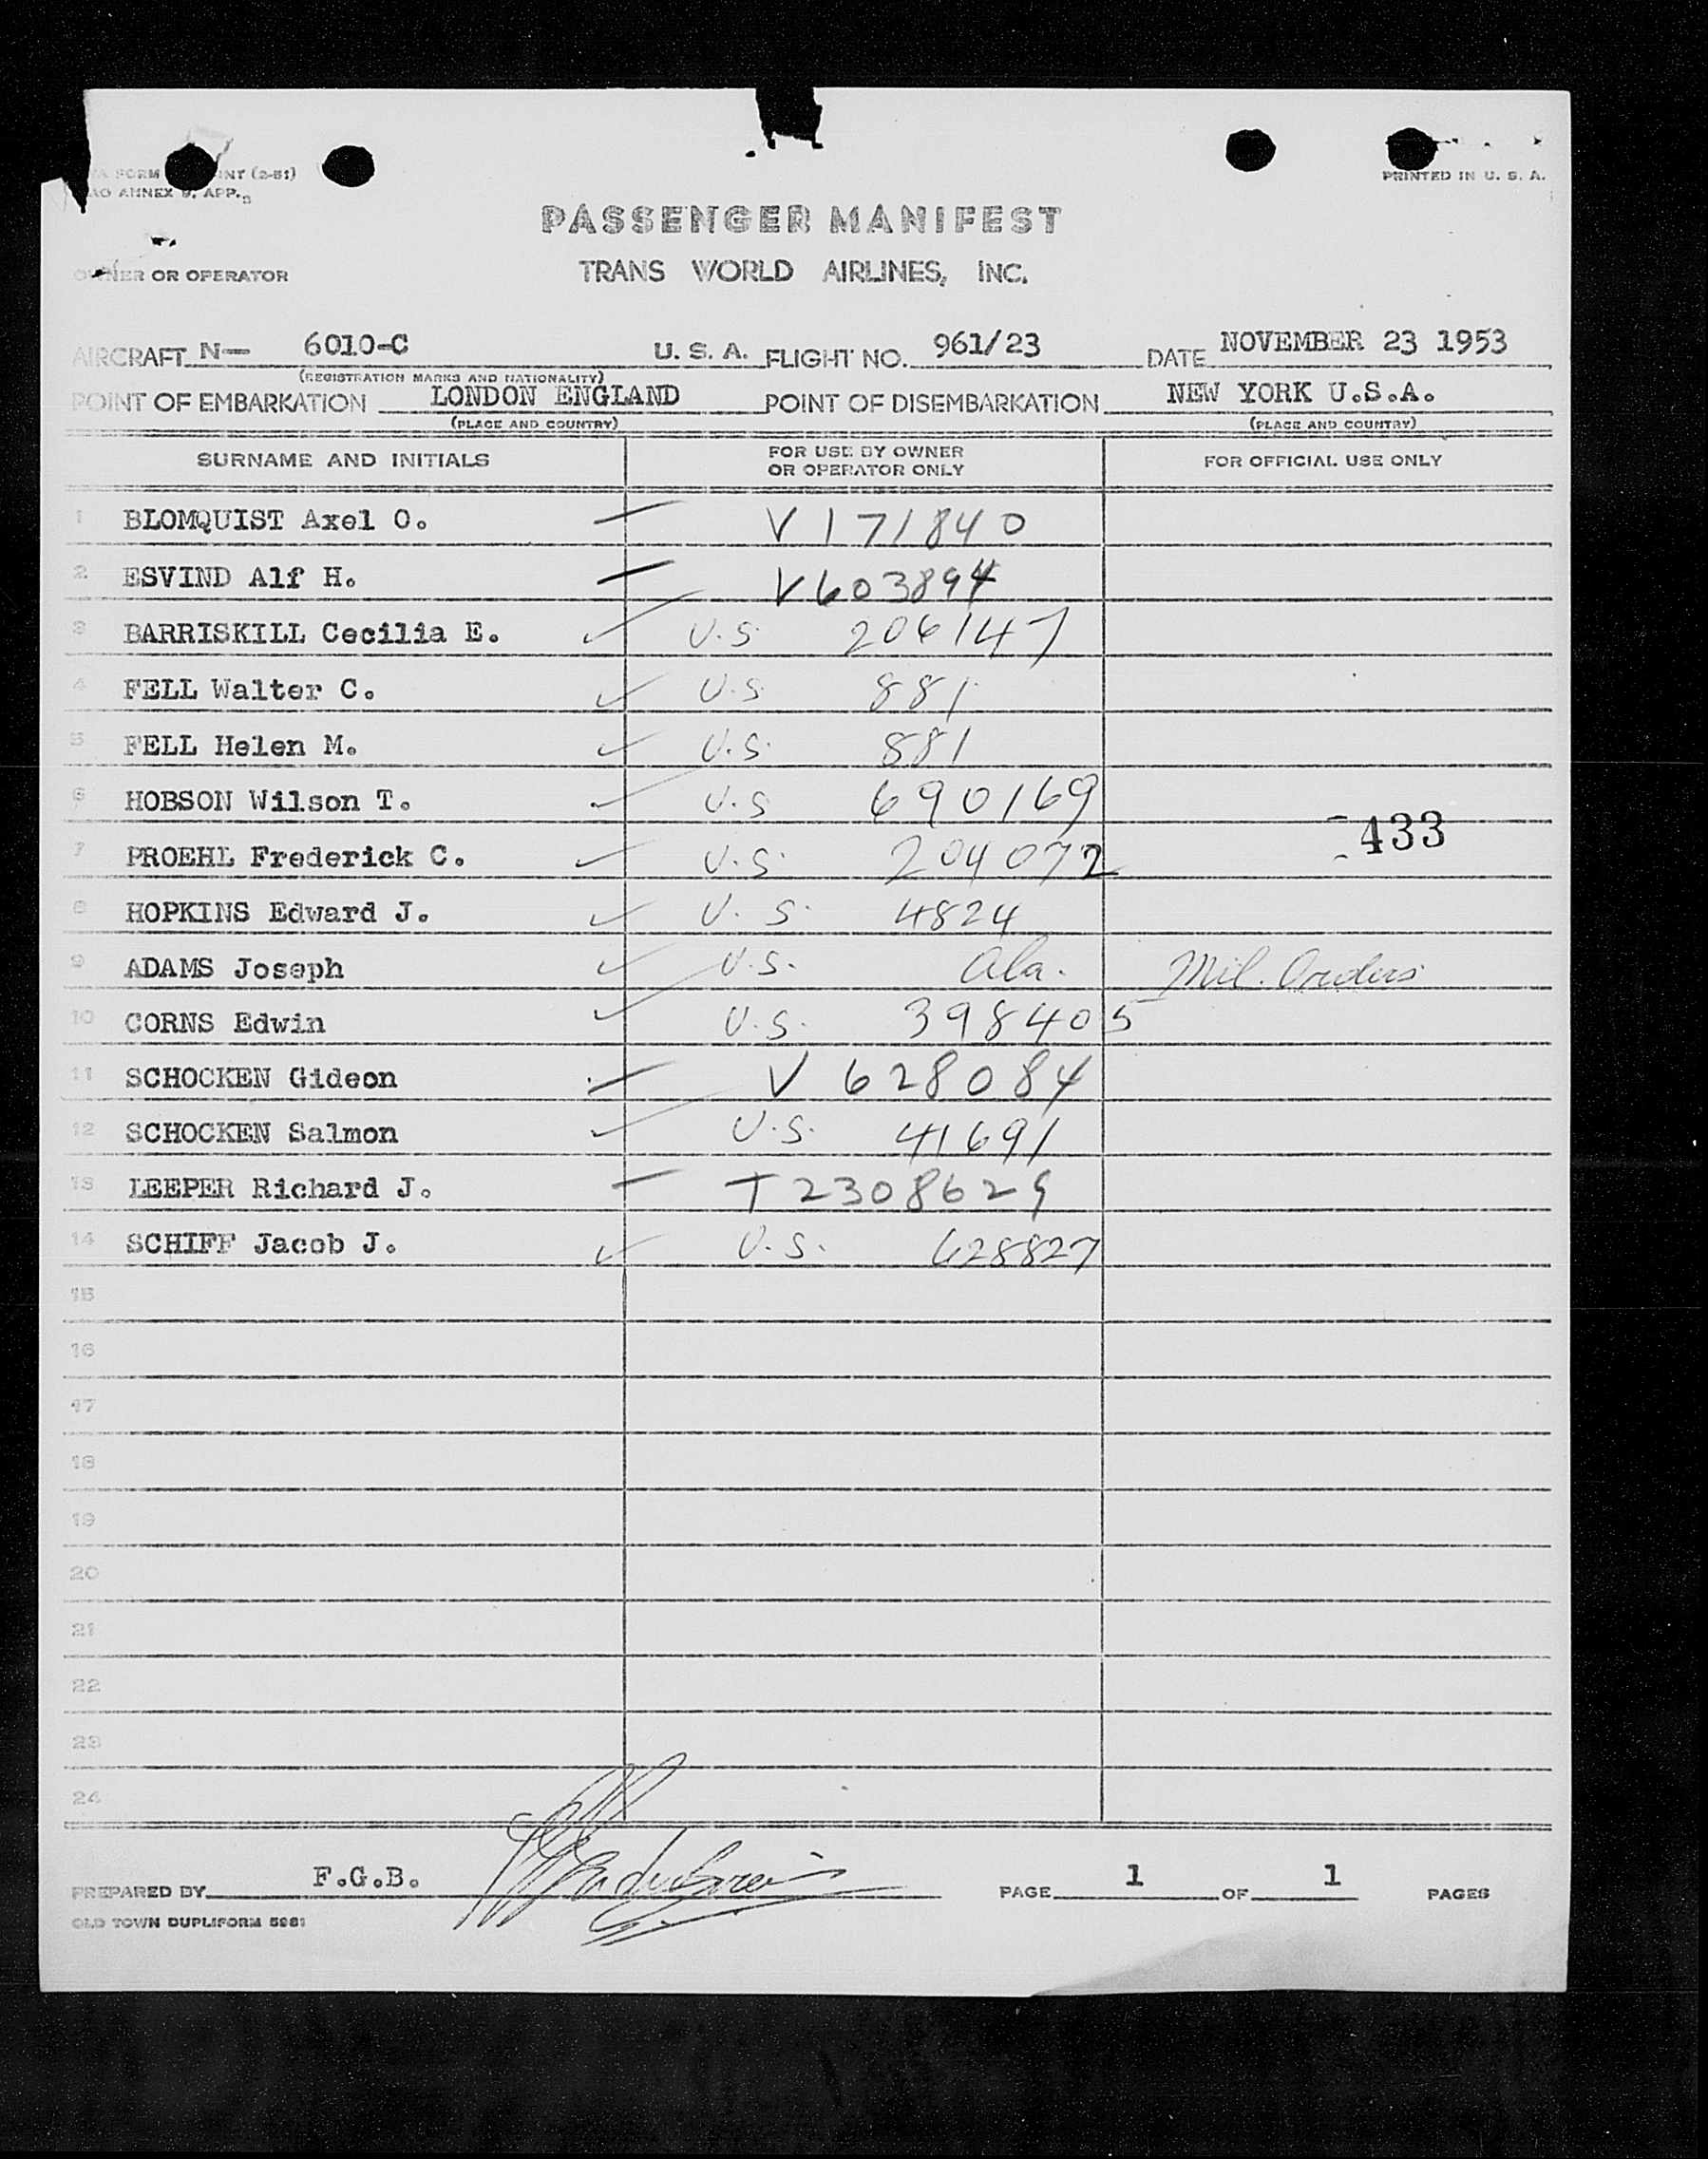 FORM INT (2-51)
PRINTED IN U. S. A.
ANNEX 9, APP. 3
PASSENGER MANIFEST
OWNER OR OPERATOR TRANS WORLD AIRLINES, INC.
AIRCRAFT N— 6010-C U. S. A. FLIGHT NO. 961/23 DATE NOVEMBER 23 1953
(REGISTRATION MARKS AND NATIONALITY)
POINT OF EMBARKATION LONDON ENGLAND POINT OF DISEMBARKATION NEW YORK U.S.A.
(PLACE AND COUNTRY) (PLACE AND COUNTRY)
SURNAME AND INITIALS FOR USE BY OWNER OR OPERATOR ONLY FOR OFFICIAL USE ONLY
1 BLOMQUIST Axel O. — V 171840
2 ESVIND Alf H. — V603894
3 BARRISKILL Cecilia E. ✓ U.S. 206147
4 FELL Walter C. ✓ U.S. 881
5 FELL Helen M. ✓ U.S. 881
6 HOBSON Wilson T. ✓ U.S 690169
433
7 PROEHL Frederick C. ✓ U.S. 204072
8 HOPKINS Edward J. ✓ U.S. 4824
9 ADAMS Joseph ✓ U.S. Ala. Mil. Orders
10 CORNS Edwin ✓ U.S. 398405
11 SCHOCKEN Gideon — V 628084
12 SCHOCKEN Salmon ✓ U.S. 41691
13 LEEPER Richard J. — T2308629
14 SCHIFF Jacob J. ✓ U.S. 628827
15
16
17
18
19
20
21
22
23
24
PREPARED BY F.G.B. PAGE 1 OF 1 PAGES
OLD TOWN DUPLIFORM 5981